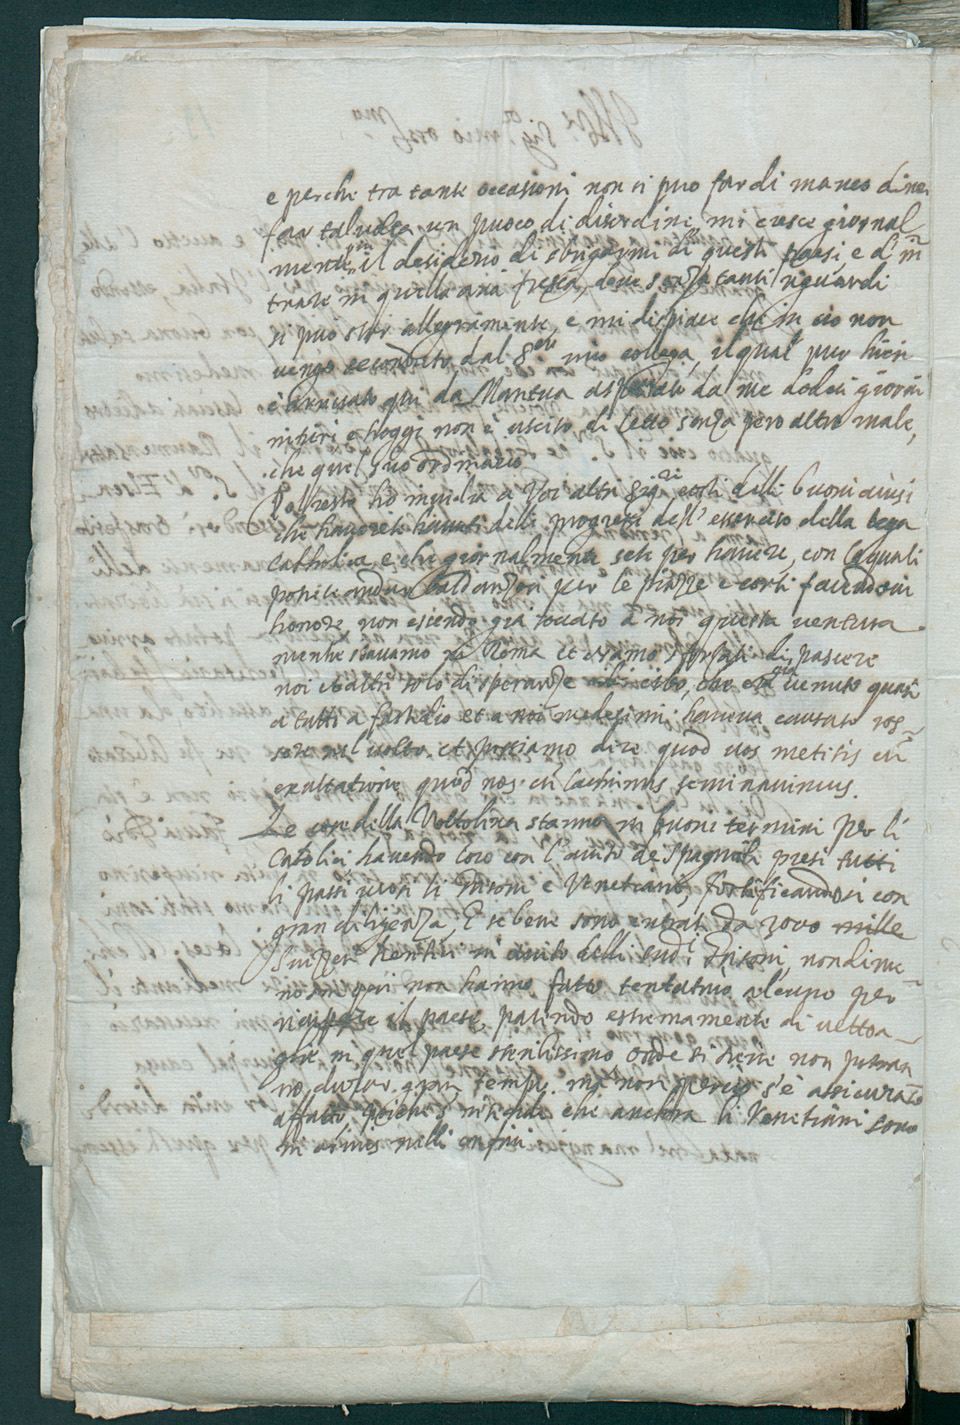 e perche tra tante occasioni non si puo far di manco di non
far talvolta un puoco di disordine, mi cresce giornal
mente il desiderio di sbrigarmi di questi paesi e d' in
trare in quella aria fresca, dove senza tanti riguardi
si può star allegramente, e mi dispiace che in cio non
vengo secondato dal S.re mio collega, il qual pur hieri
è arrivato qui da Mantua aspettato da me dodeci giorni
intieri e hoggi non è uscito di letto senza pero altro male,
che quel suo ordinario
Del resto ho invidia a Voi altri Sig.ri costi delli buoni avisi
che havete havuti delli progressi dell' essercito della lega
Catholica, e che giornalmente sete per havere, con le quali
potete andar baldanzosi per le piazze e corti facendovi
honore, non essendo gia toccato a noi questa ventura
mentre stavamo a Roma et eramo sforzati di pascere
noi et altri solo di speranze cibo, che era venuto quasi
a tutti a fastidio et a noi medesimi haveva causato ros
sore nel volto et possiamo dire quod vos metitis in
exultatione quod nos in lacrimis seminavimus.
Le cose della Voltolina stanno in buoni termini per li
Catolici havendo loro con l' aiuto de Spagnoli presi tutti
li passi verso li Grisoni e Venetiani, fortificandosi con
gran diligenza, E se bene sono entrati da 3000 mille
Suizzeri heretici in aiuto delli sud.i Grisoni, nondime
no sin qui non hanno fatto tentativo alcuno per
il paese, patindo estremamente di vettoa
glie in quel paese sterilissimo onde si tiene non potran
no durar gran tempo. ma non percio s'è assicurato
affatto, poiche s' intende che anchora li Venetiani sono
in armis nelli confini.